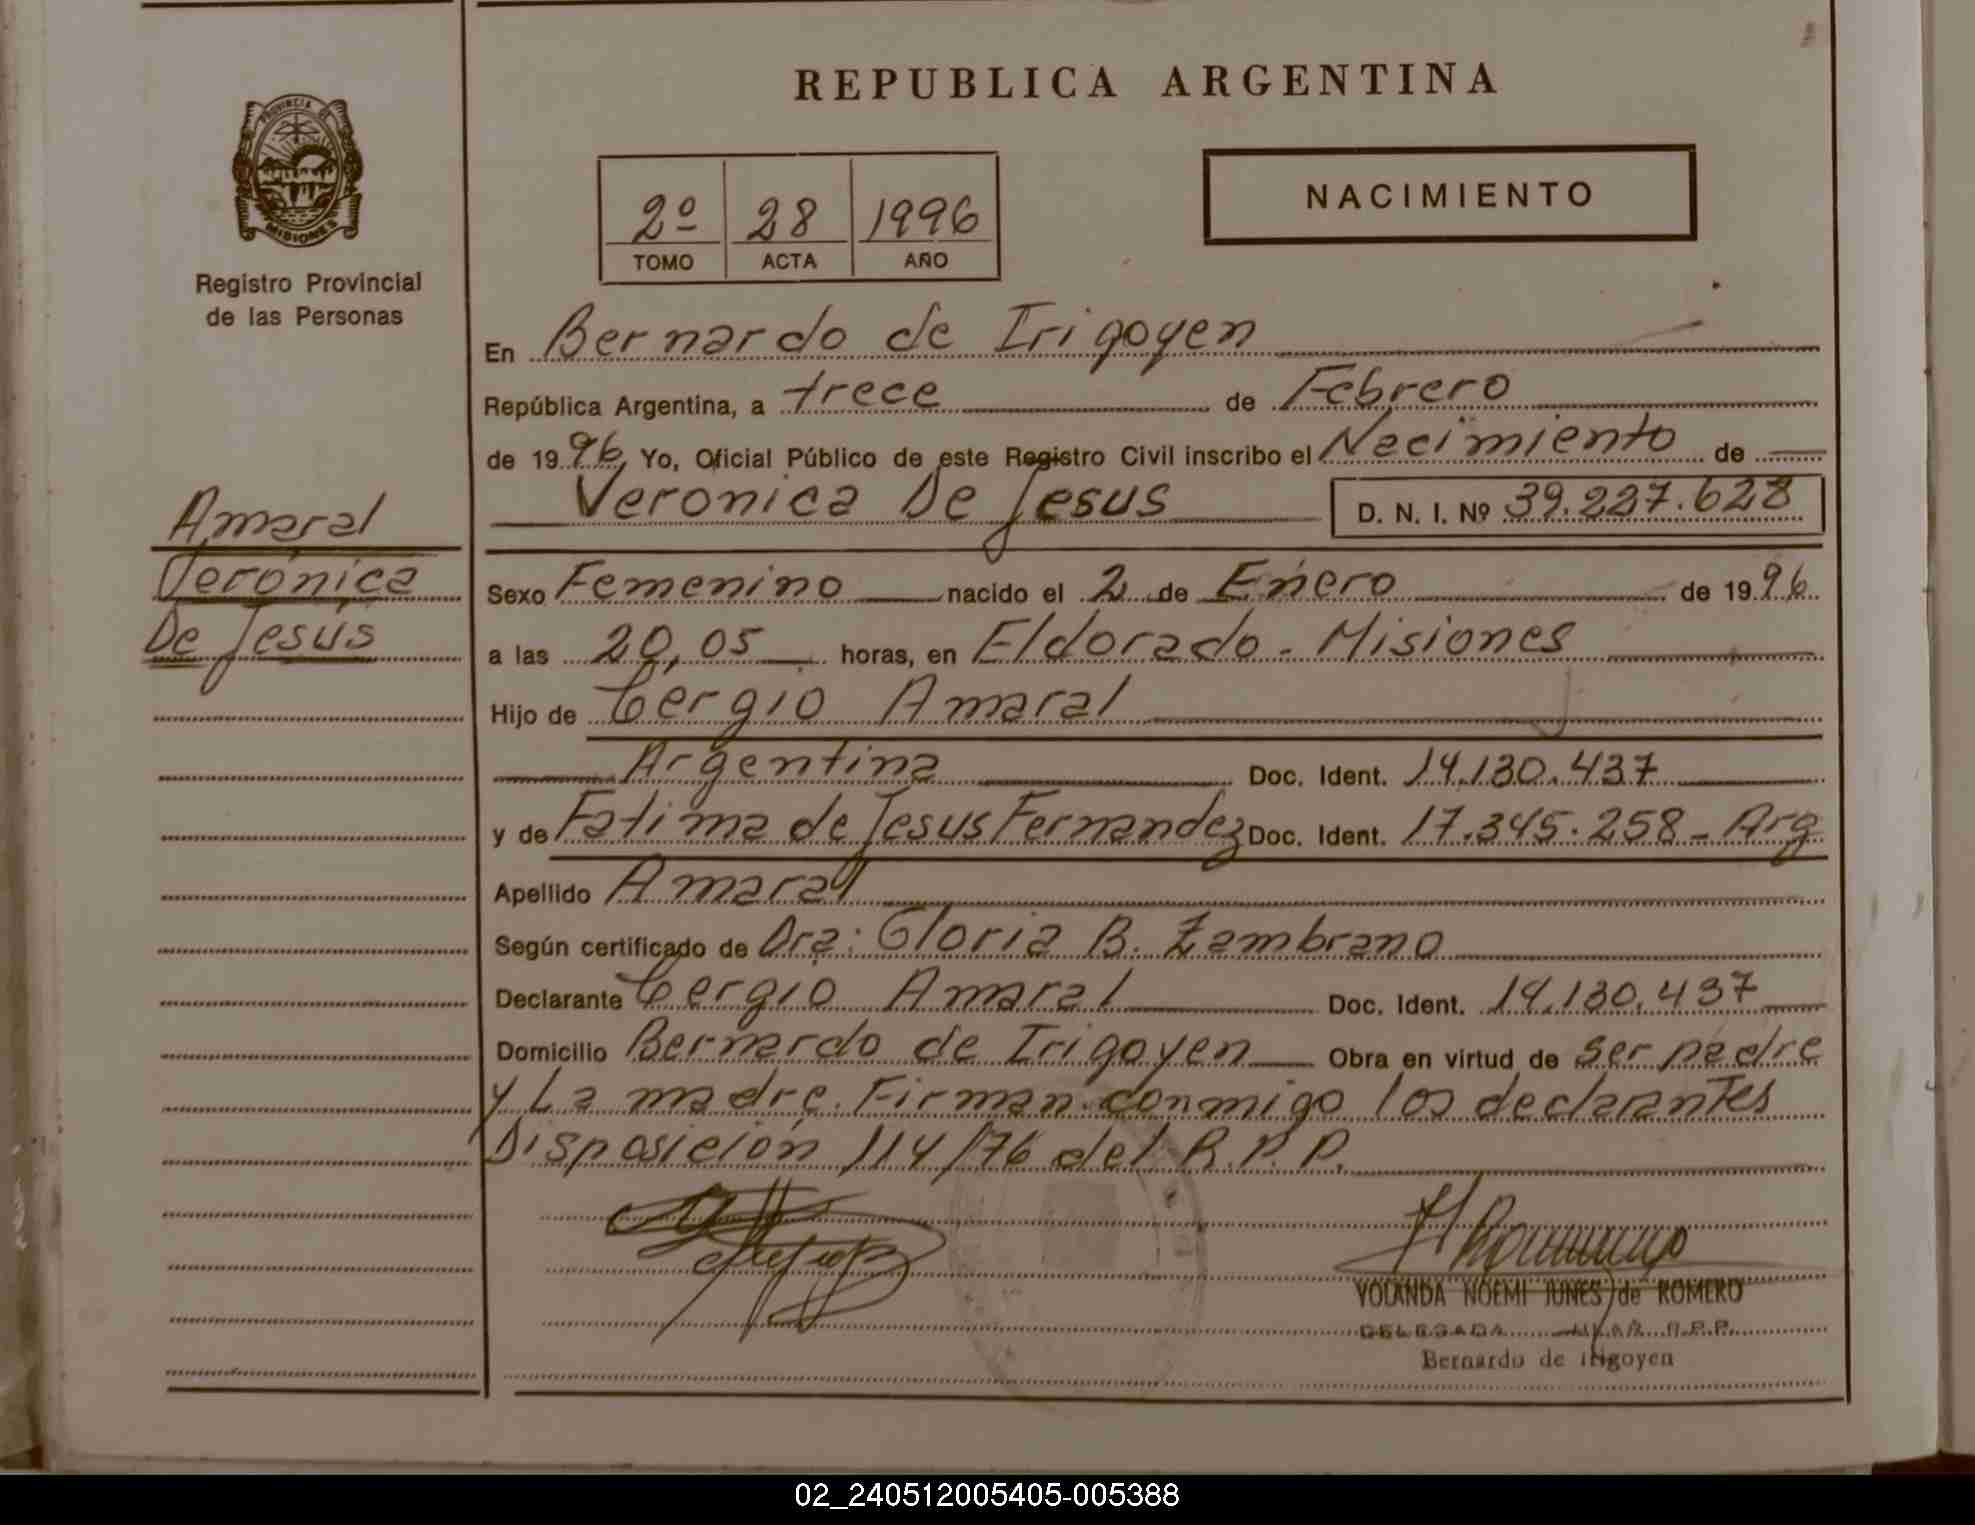 REPUBLICA ARGENTINA
PROVINCIA DE
MISIONES
Registro Provincial
de las Personas
2º 28 1996
TOMO ACTA AÑO
NACIMIENTO
En Bernardo de Irigoyen
República Argentina, a trece de Febrero
de 1996 Yo, Oficial Público de este Registro Civil inscribo el Nacimiento de
Veronica De Jesus D. N. I. Nº 39.227.628
Amaral
Verónica
De Jesús
Sexo Femenino nacido el 2 de Enero de 1996
a las 20,05 horas, en Eldorado - Misiones
Hijo de Cergio Amaral
Argentina Doc. Ident. 14.130.437
y de Fatima de Jesus Fernandez Doc. Ident. 17.345.258 - Arg
Apellido Amaral
Según certificado de Dra: Gloria B. Zambrano
Declarante Cergio Amaral Doc. Ident. 14.130.437
Domicilio Bernardo de Irigoyen Obra en virtud de ser padre
y La madre. Firman conmigo los declarantes
Disposición 114/76 del R.P.P.
YOLANDA NOEMI JUNES de ROMERO
DELEGADA R.P.P.
Bernardo de Irigoyen
02_240512005405-005388